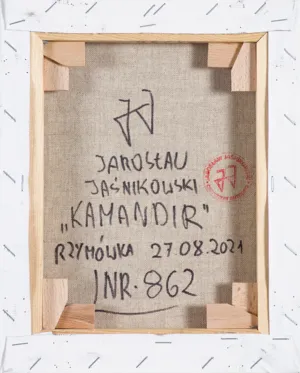 JJ
JAROSŁAW
JAŚNIKOWSKI
„KAMANDIR"
RZYMÓWKA 27.08.2021
INR. 862